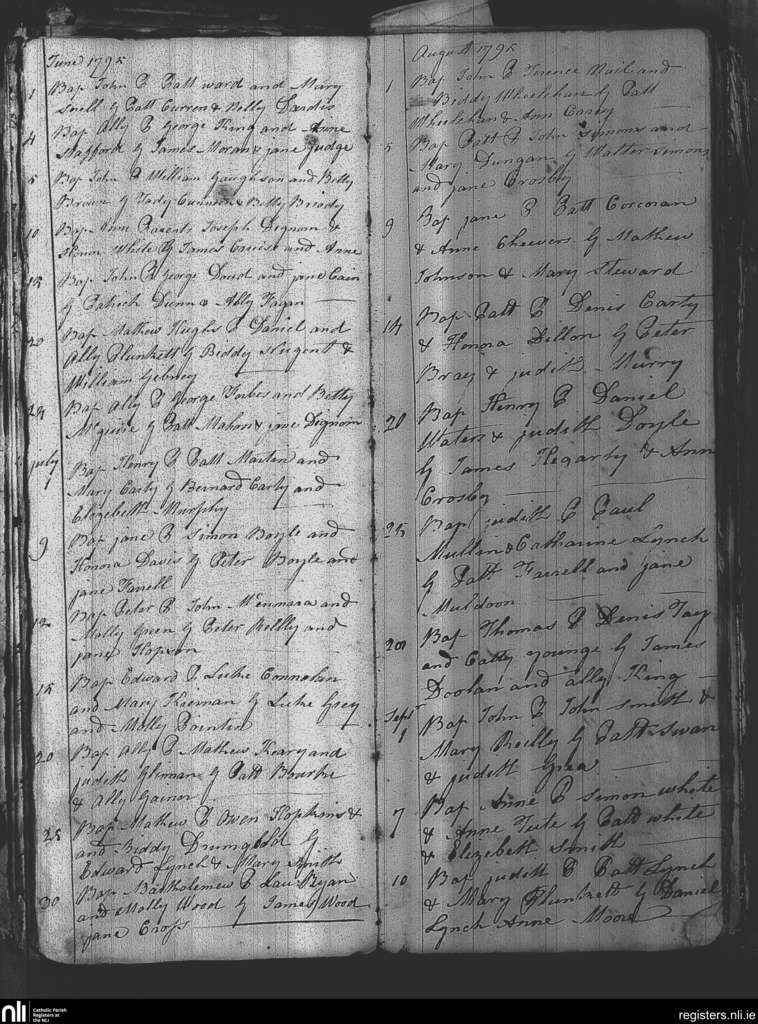 June 1795
1 Bap John P Patt ward and Mary
Snell G Patt Curren & Nelly Dardis
4 Bap Ally P George King and Anne
Stafford G James Moran & jane judge
5 Bap John P William Gaughson and Betty
Brown G Tady Cunneen & Betty Briody
10 Bap Anne Parents Joseph Dignam &
Honor White G James Cruise and Anne
15 Bap John P George Doud and jane Cain
G Patrick Dunn & Ally Fagan
20 Bap Mathew Hughs P Daniel and
Ally Plunkett G Biddy Nugent &
William Gebney
24 Bap Ally P George Forbes and Betty
McGuire G Patt Mahon & jane Dignam
july
1 Bap Henry P Patt Martin and
Mary Carty G Bernard Carty and
Elizebeth Murphy
9 Bap jane P Simon Boyle and
Honora Davis G Peter Boyle and
jane Farrell
12 Bap Peter P John McEnmara and
Molly Green G Peter Reilly and
jane Hopson
15 Bap Edward P Luke Connolan
and Mary Keernan G Luke Grey
and Molly Pointin
20 Bap Ally P Mathew Keary and
judith G Patt Bourke
& Ally Gainor
25 Bap Mathew P Owen Hopkins &
and Biddy Drumgold G
Edward Lynch & Mary Smith
30 Bap Bartholemew P Lau Ryan
and Molly Wood G James Wood
jane Cross
August 1795
1 Bap John P Terence Mail and
Biddy Wheelehan G Patt
Wheelehan & Ann Carey
5 Bap Patt P John Simons and
Mary Dungan G Walter Simons
and jane Crosby
9 Bap jane P Patt Corcoran
& Anne Cheevers G Mathew
Johnson & Mary Steward
14 Bap Patt P Denis Carty
& Honora Dillon G Peter
Bray & judith Murry
20 Bap Henry P Daniel
Waters & judith Doyle
G James Hegarty & Ann
Crosby
25 Bap judith P Paul
Mullin & Catharine Lynch
G Patt Farrell and jane
Muldoon
Bap Thomas P Denis Fay
and Catty younge G James
Doolan and ally King
Sept
1 Bap John P John smith &
Mary Reilly G Patt Swan
& judith
7 Bap Anne P simon white
& Anne Tute G Patt white
& Elizebeth Smith
10 Bap judith P Patt Lynch
& Mary Plunkett G Daniel
Lynch Anne Moore
nli
Catholic Parish
Registers at
the NLI
registers.nli.ie